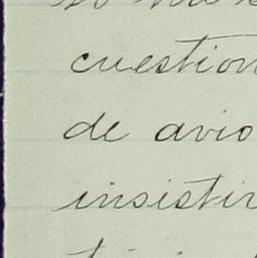 cuestion
de avio
insistir